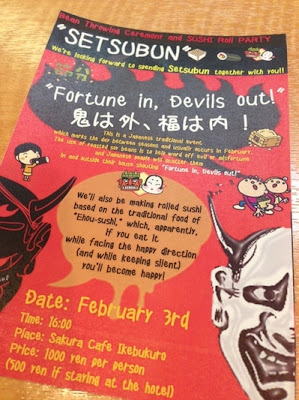 Bean Throwing Ceremony and SUSHI Roll PARTY
"SETSUBUN"
We're looking forward to spending Setsubun together with you!!
"Fortune in, Devils out!"
鬼は外、福は内！
This is a Japanese traditional event,
which marks the day between seasons and usually occurs in February.
The use of roasted soy beans is to help ward off evil or misfortune
and Japanese people will scatter them
in and outside their house shouting "Fortune in, Devils out!"
We'll also be making rolled sushi
based on the traditional food of
"Ehou-sushi," which, apparently,
If you eat it
while facing the happy direction
(and while keeping silent)
you'll become happy!
Date: February 3rd
Time: 16:00
Place: Sakura Cafe Ikebukuro
Price: 1000 yen per person
(500 yen if staying at the hotel)